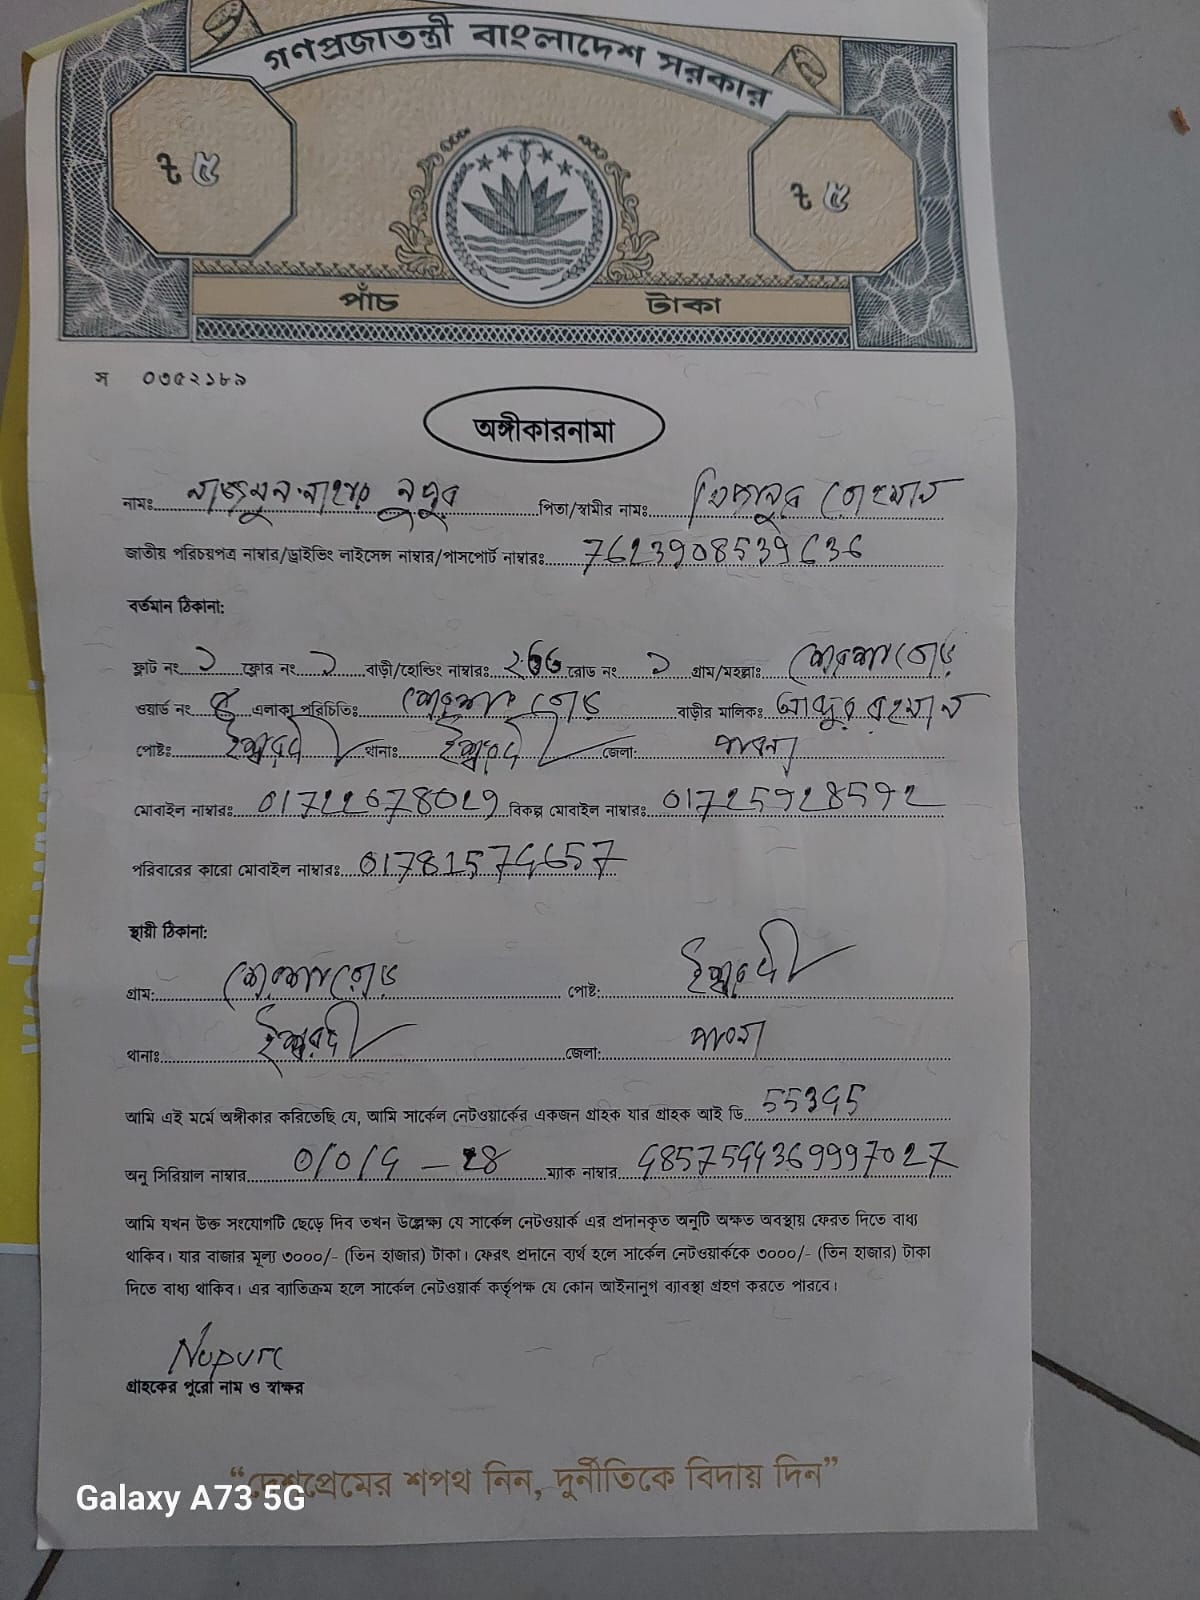 গণপ্রজাতন্ত্রী বাংলাদেশ সরকার
৳ ৫ ৳ ৫
পাঁচ টাকা
স ০৩৫২১৮৯
অঙ্গীকারনামা
নামঃ নাজমুন নাহার নুপুর পিতা/স্বামীর নামঃ মিজানুর রহমান
জাতীয় পরিচয়পত্র নাম্বার/ড্রাইভিং লাইসেন্স নাম্বার/পাসপোর্ট নাম্বারঃ 7623908539636
বর্তমান ঠিকানা:
ফ্লাট নং ১ ফ্লোর নং ১ বাড়ী/হোল্ডিং নাম্বারঃ রোড নং ১ গ্রাম/মহল্লাঃ
ওয়ার্ড নং ৪ এলাকা পরিচিতিঃ বাড়ীর মালিকঃ আব্দুর রহমান
পোষ্টঃ ঈশ্বরদী থানাঃ ঈশ্বরদী জেলা: পাবনা
মোবাইল নাম্বারঃ 01722678029 বিকল্প মোবাইল নাম্বারঃ 01725928592
পরিবারের কারো মোবাইল নাম্বারঃ
স্থায়ী ঠিকানা:
গ্রাম: পোষ্ট: ঈশ্বরদী
থানাঃ ঈশ্বরদী জেলা: পাবনা
আমি এই মর্মে অঙ্গীকার করিতেছি যে, আমি সার্কেল নেটওয়ার্কের একজন গ্রাহক যার গ্রাহক আই ডি
অনু সিরিয়াল নাম্বার ম্যাক নাম্বার
আমি যখন উক্ত সংযোগটি ছেড়ে দিব তখন উল্লেক্ষ্য যে সার্কেল নেটওয়ার্ক এর প্রদানকৃত অনুটি অক্ষত অবস্থায় ফেরত দিতে বাধ্য
থাকিব। যার বাজার মূল্য ৩০০০/- (তিন হাজার) টাকা। ফেরৎ প্রদানে ব্যর্থ হলে সার্কেল নেটওয়ার্ককে ৩০০০/- (তিন হাজার) টাকা
দিতে বাধ্য থাকিব। এর ব্যাতিক্রম হলে সার্কেল নেটওয়ার্ক কর্তৃপক্ষ যে কোন আইনানুগ ব্যাবস্থা গ্রহণ করতে পারবে।
Nupur
গ্রাহকের পুরো নাম ও স্বাক্ষর
“দেশপ্রেমের শপথ নিন, দুর্নীতিকে বিদায় দিন”
Galaxy A73 5G